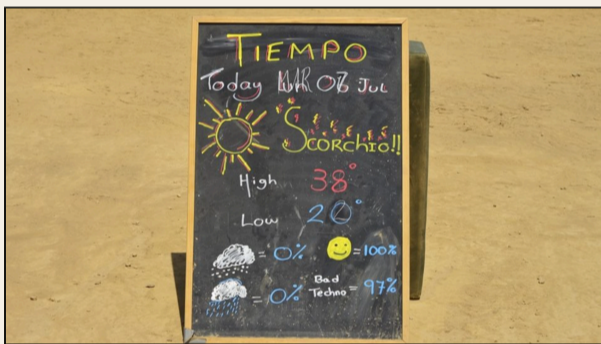 TIEMPO
Today 07 Jul
SCORCHIO!!
High 38°
Low 20°
= 0% = 100%
= 0% Bad Techno = 97%